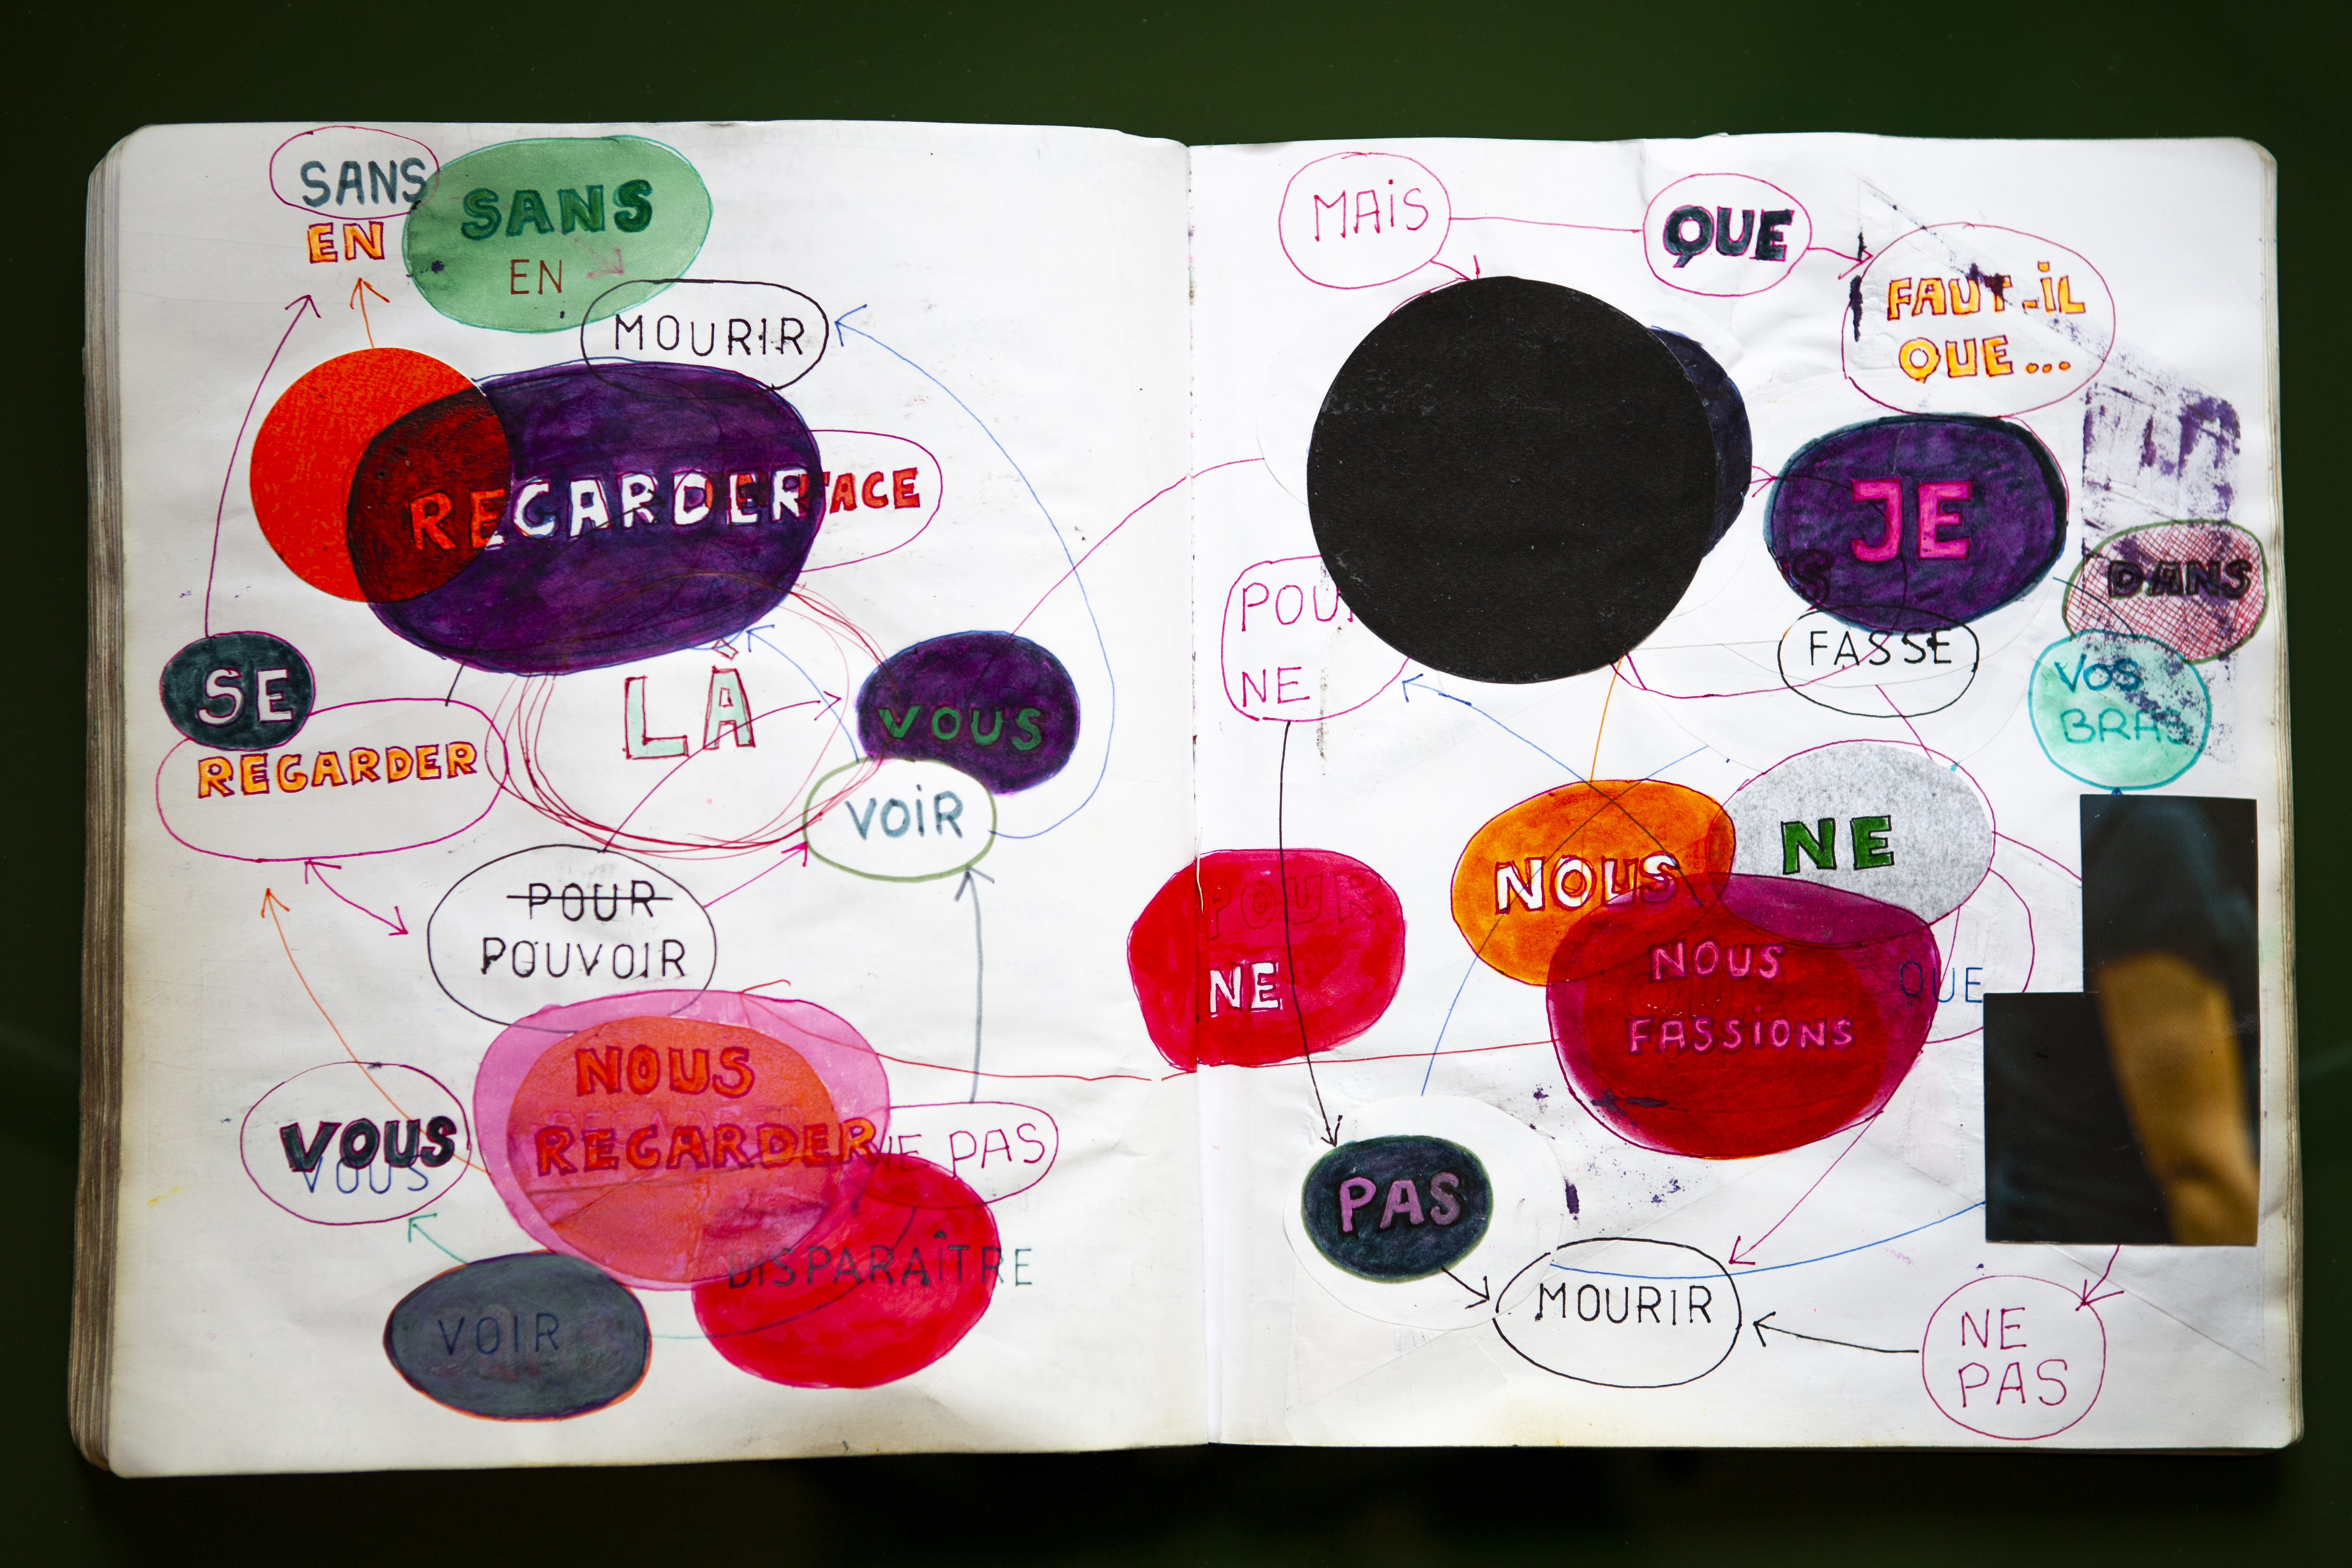 SANS
EN
SANS
EN
MOURIR
REGARDER
FACE
SE
REGARDER
LÀ
VOUS
VOIR
POUR
POUVOIR
NOUS
REGARDER
NE PAS
VOUS
VOUS
DISPARAÎTRE
VOIR
MAIS
QUE
FAUT-IL
QUE...
JE
DANS
POUR
NE
FASSE
VOS
BRAS
NOUS
NE
POUR
NE
NOUS
FASSIONS
QUE
PAS
MOURIR
NE
PAS